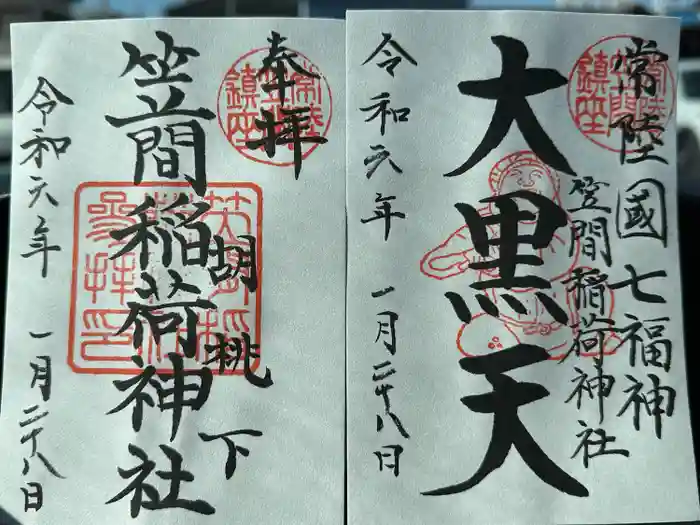 常陸國七福神
笠間稲荷神社
大黒天
令和元年 一月二十八日
奉拝
胡桃下
笠間稲荷神社
令和元年 一月二十八日